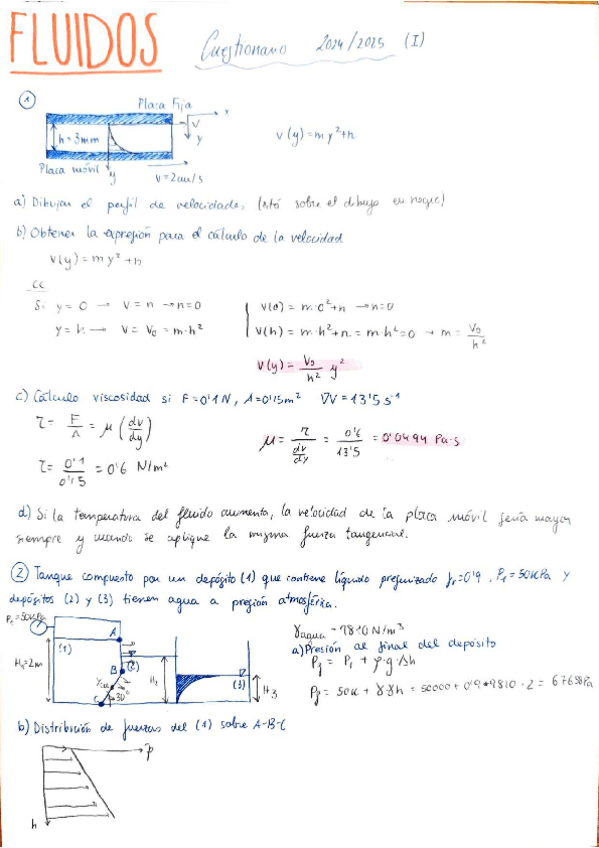 FLUIDOS Cuestionario 2024/2025 (I)
①
Placa Fija
x
v
y
h = 3mm
Placa móvil
y
V = 2cm/s
v(y) = my²+n
a) Dibujar el perfil de velocidades, (está sobre el dibujo en negro)
b) Obtener la expresión para el cálculo de la velocidad
v(y) = my²+n
CC
Si y = 0 → V = n → n=0
y = h → V = V₀ = m·h²
V(0) = m·0²+n → n=0
V(h) = m·h²+n = m·h²=0 → m = V₀/h²
V(y) = V₀/h² y²
c) Cálculo viscosidad si F=0'1 N, A=0'15m² ∇V = 13'5 s⁻¹
τ = F/A = μ (dv/dy)
τ = 0'1/0'15 = 0'6 N/m²
μ = τ/(dv/dy) = 0'6/13'5 = 0'0494 Pa·s
d) Si la temperatura del fluido aumenta, la velocidad de la placa móvil sería mayor
siempre y cuando se aplique la misma fuerza tangencial.
② Tanque compuesto por un depósito (1) que contiene líquido presurizado γr=0'9, P₁=50KPa y
depósitos (2) y (3) tienen agua a presión atmosférica.
P₁=50KPa
A
(1)
H₁=2m
B
(2)
H₂
(3)
H3
C
30°
γagua = 9810 N/m³
a) Presión al final del depósito
Pf = P₁ + ρ·g·Δh
Pf = 50K + γ·γh = 50000 + 0'9·9810·2 = 67658Pa
b) Distribución de fuerzas del (1) sobre A-B-C
P
h